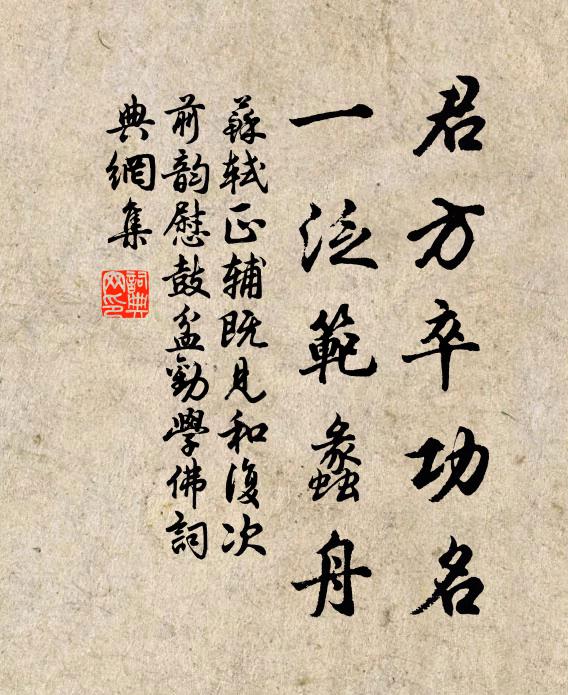 君方卒功名
一泛範蠡舟
蘇軾正輔既見和復次
前韵慰鼓盆勸學佛詞
典網集
詞典網印